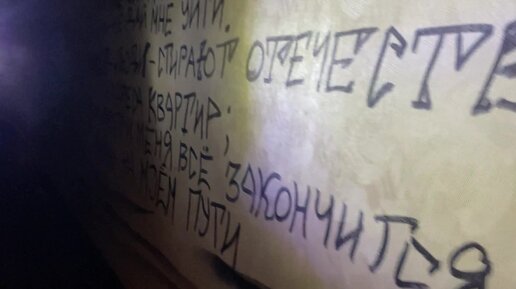 МНЕ УЙТИ.
СТИРАЮТ ОТЕЧЕСТВ
КВАРТИР;
МЕНЯ ВСЁ ЗАКОНЧИТСЯ
МОЁМ ПУТИ